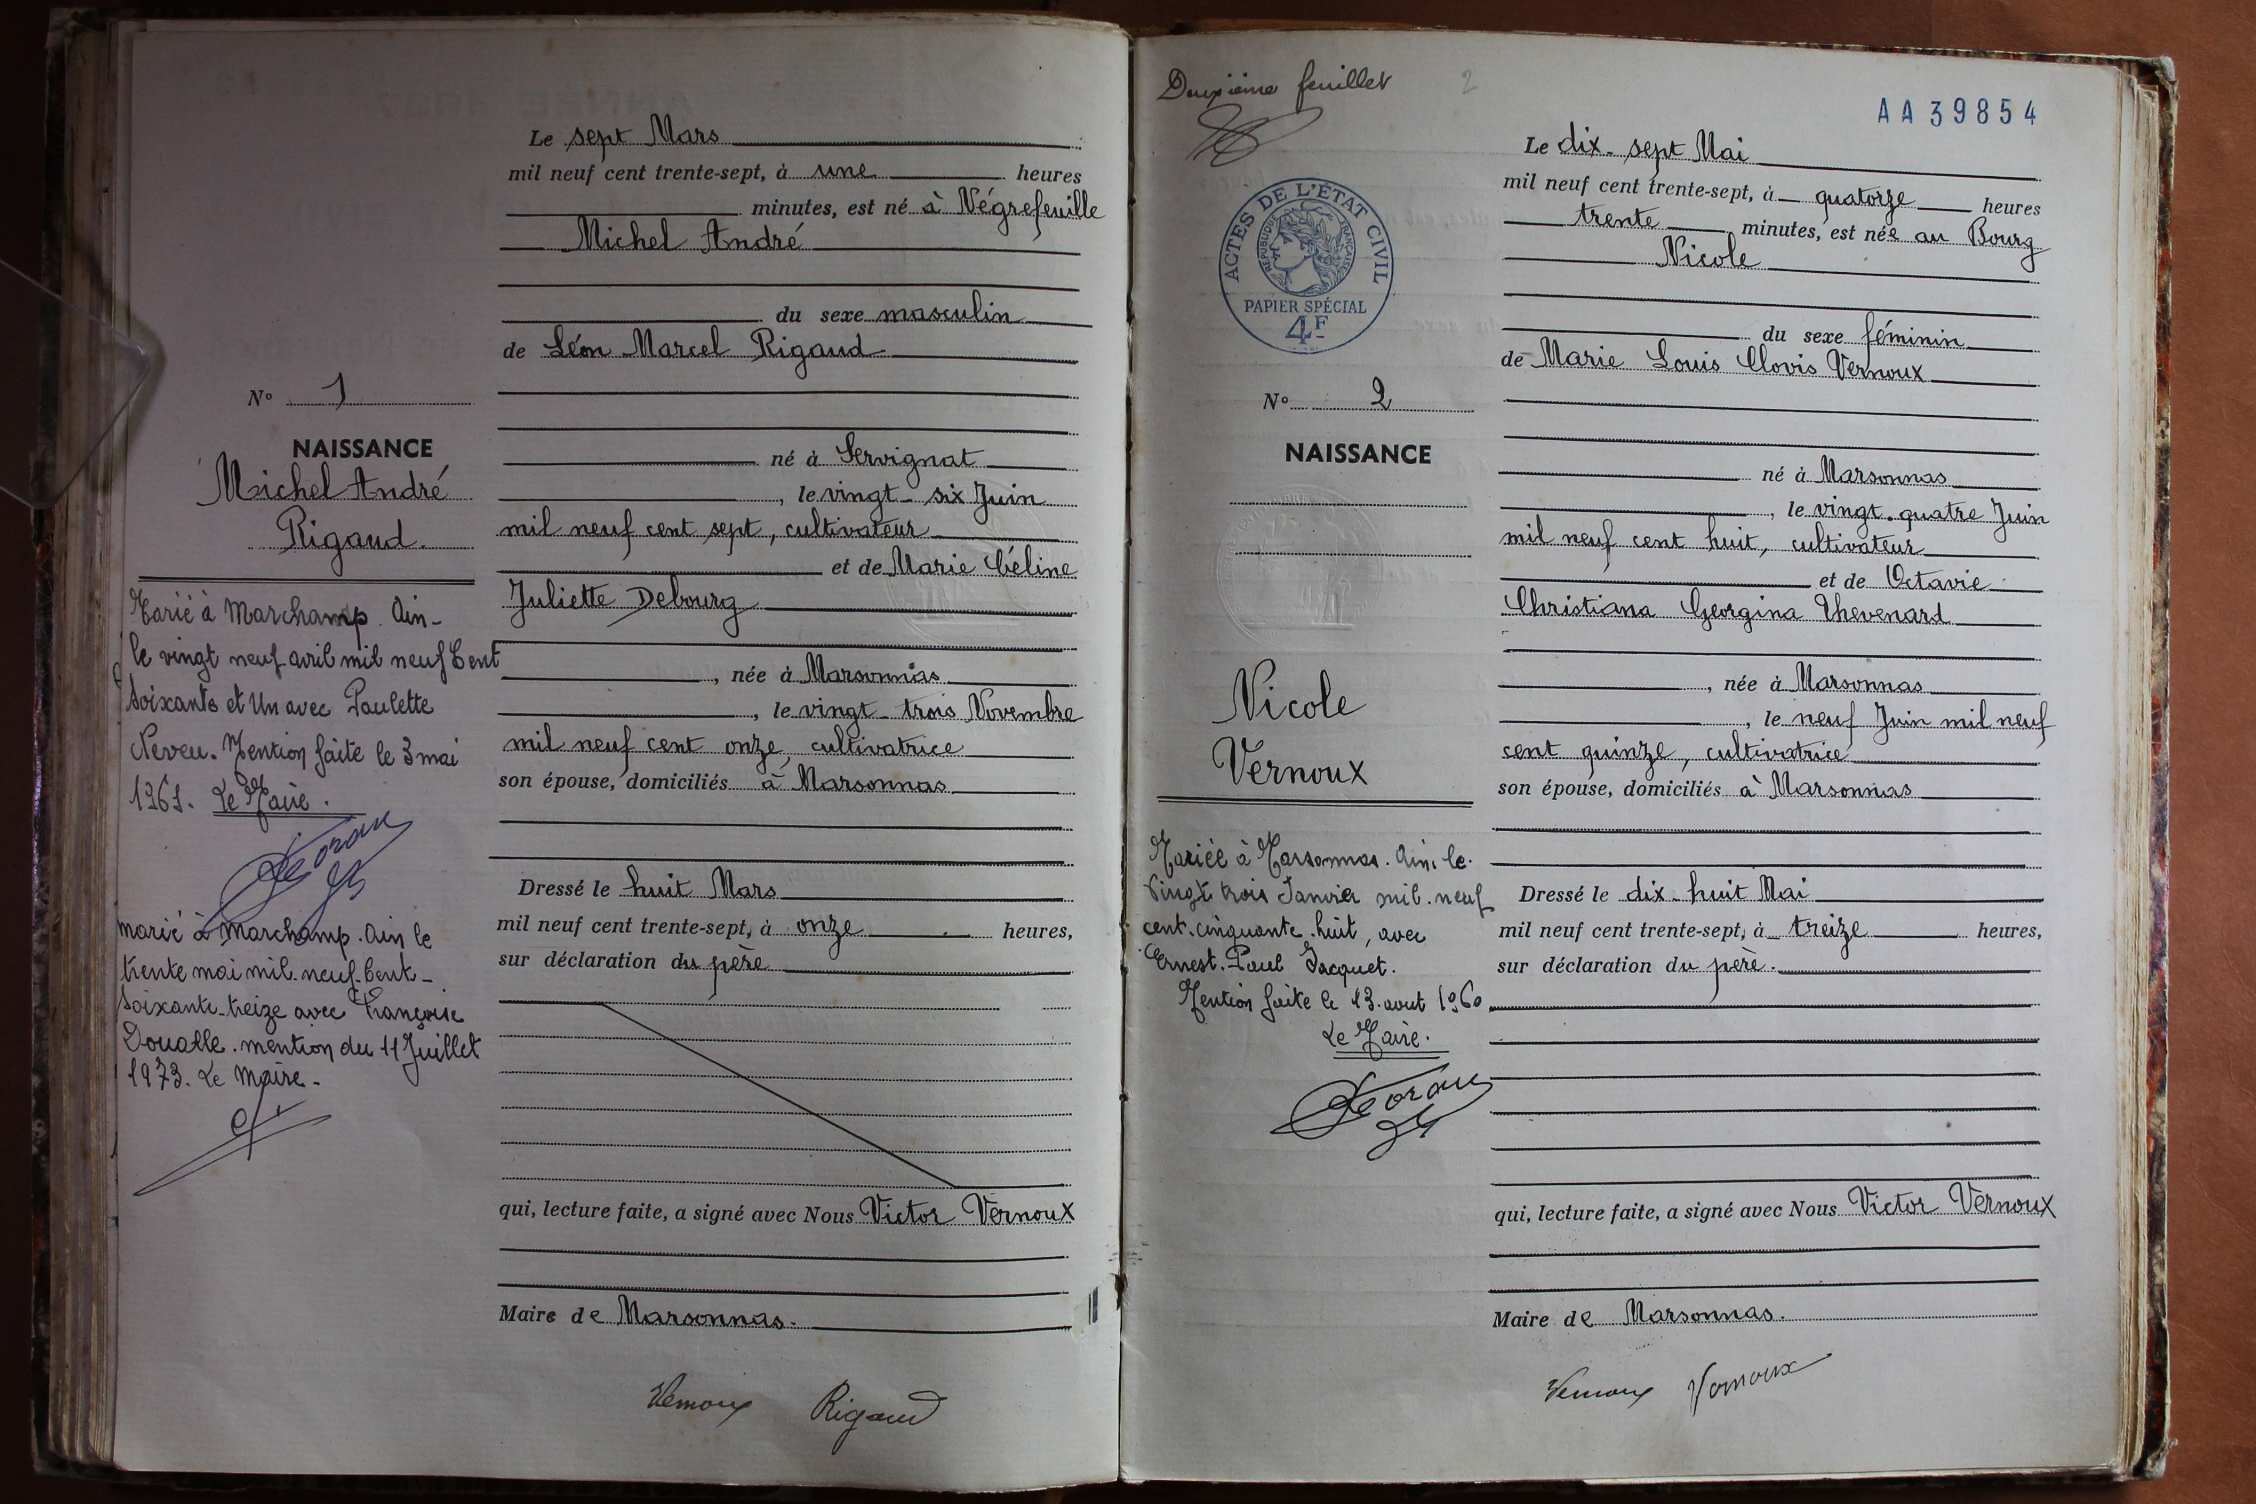 Le sept Mars
mil neuf cent trente-sept, à une heures
minutes, est né à Négrefeuille
Michel André
du sexe masculin
de Léon Marcel Rigaud
N° 1
NAISSANCE
Michel André
Rigaud.
né à Servignat
, le vingt-six Juin
mil neuf cent sept, cultivateur
et de Marie Céline
Juliette Debourg
, née à Marsonnas
, le vingt-trois Novembre
mil neuf cent onze, cultivatrice
son épouse, domiciliés à Marsonnas
Marié à Marchamp. Ain-
le vingt neuf avril mil neuf Cent
Soixante et Un avec Paulette
Neveu. Mention faite le 3 mai
1961. Le Maire.
marié à Marchamp. Ain le
trente mai mil-neuf-Cent-
Soixante-treize avec Françoise
Doualle. mention du 11 Juillet
1973. Le Maire-
Dressé le huit Mars
mil neuf cent trente-sept, à onze heures,
sur déclaration du père
qui, lecture faite, a signé avec Nous Victor Vernoux
Maire de Marsonnas.
Vernoux Rigaud
Deuxième feuillet 2
AA39854
ACTES DE L'ÉTAT CIVIL
RÉPUBLIQUE FRANÇAISE
PAPIER SPÉCIAL
4F
Le dix-sept Mai
mil neuf cent trente-sept, à quatorze heures
trente minutes, est née au Bourg
Nicole
du sexe féminin
de Marie Louis Clovis Vernoux
N° 2
NAISSANCE
Nicole
Vernoux
né à Marsonnas
, le vingt-quatre Juin
mil neuf cent huit, cultivateur
et de Octavie
Christiana Georgina Thevenard
, née à Marsonnas
, le neuf Juin mil neuf
cent quinze, cultivatrice
son épouse, domiciliés à Marsonnas
Mariée à Marsonnas. Ain. le.
Vingt trois Janvier mil. neuf
cent. cinquante. huit, avec
Ernest. Paul Jacquet.
Mention faite le 13. aout 1960
Le Maire.
Dressé le dix-huit Mai
mil neuf cent trente-sept, à treize heures,
sur déclaration du père.
qui, lecture faite, a signé avec Nous Victor Vernoux
Maire de Marsonnas.
Vernoux Vernoux